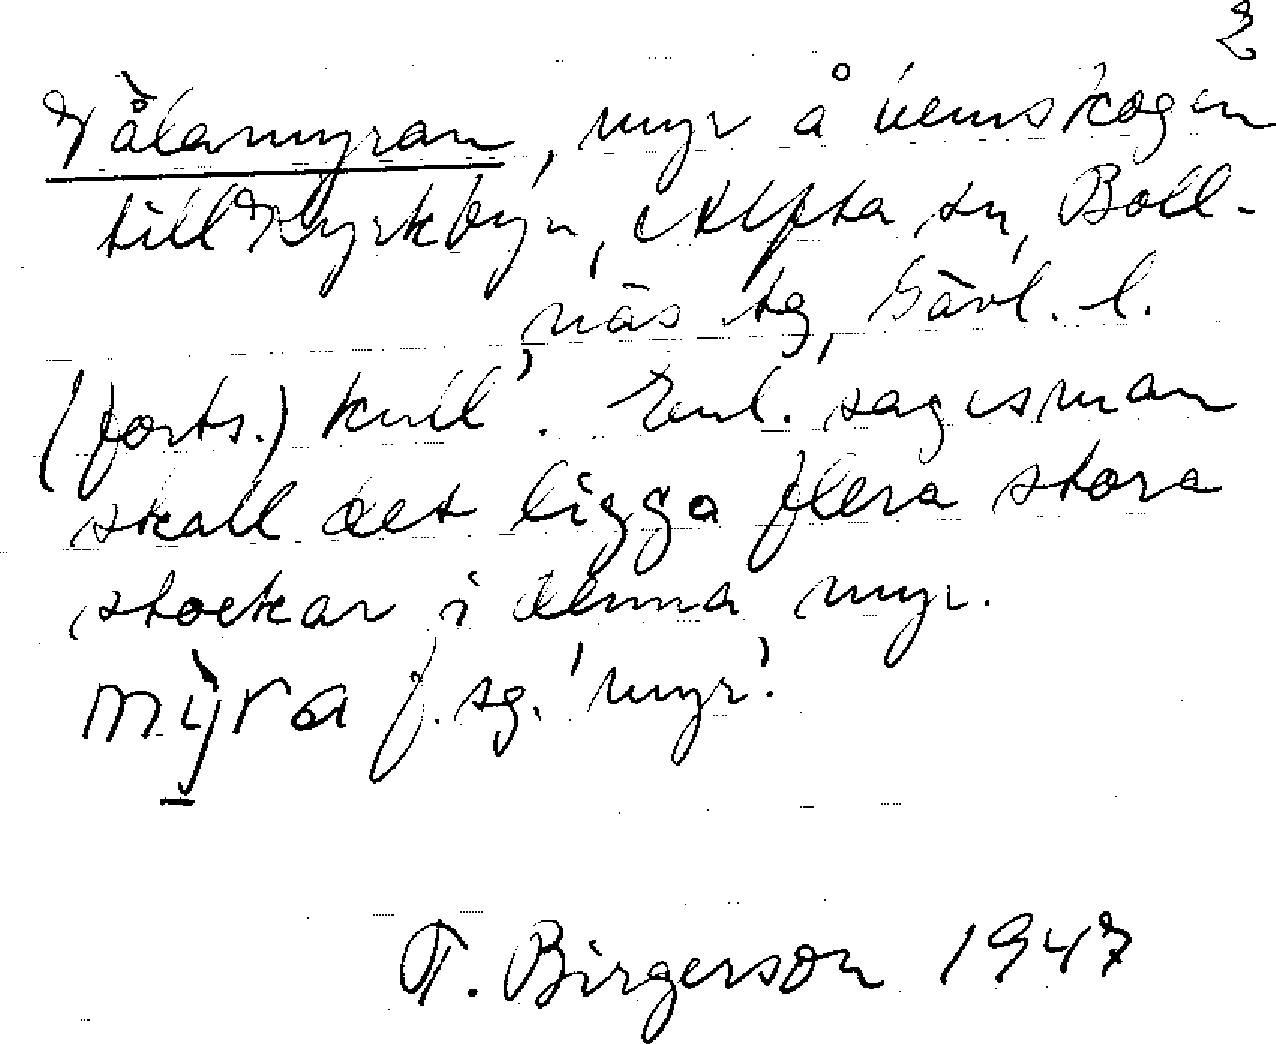 2
Vålamyran, myr å hemskogen
till Kyrkbyn, Alfta sn, Boll-
näs tg, Gävl. l.
(forts.) kull'. Enl. sagesman
skall det ligga flera stora
stockar i denna myr.
mỳra f. sg. 'myr'.
T. Birgerson 1947